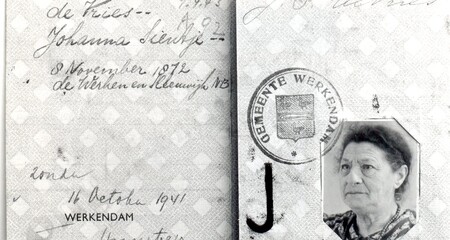 de Vries--
Johanna Sientje--
8 November 1872
de Werken en Sleeuwijk NB
zonder
16 October 1941
WERKENDAM
GEMEENTE WERKENDAM
J